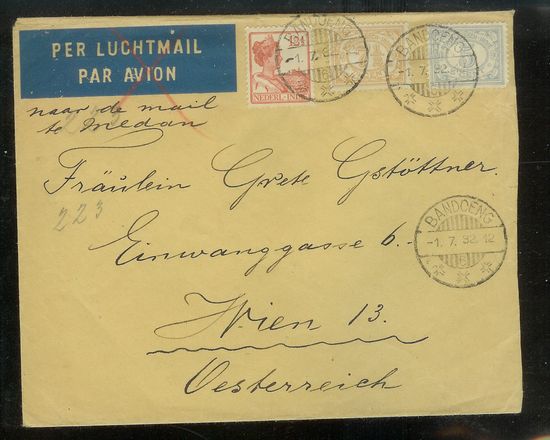 PER LUCHTMAIL
PAR AVION
naar de mail
te Medan
NEDERL-IND
BANDOENG
-1.7.32
BANDOENG
-1.7.32
Fräulein Grete Gstöttner.
223
Einwanggasse 6.-
BANDOENG
-1.7.32.12
Wien 13.
Oesterreich